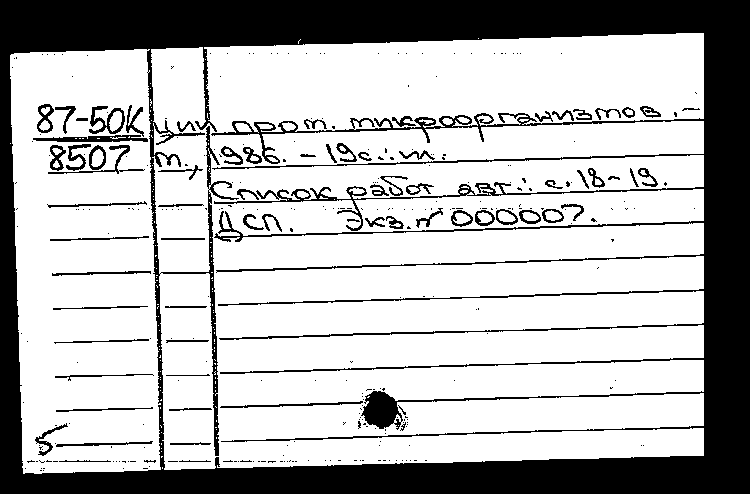 87-50К ции пром. микроорганизмов. –
8507 М., 1986. – 19с.: ил.
Список работ авт.: с. 18–19.
ДСП. Экз. № 000007.
5